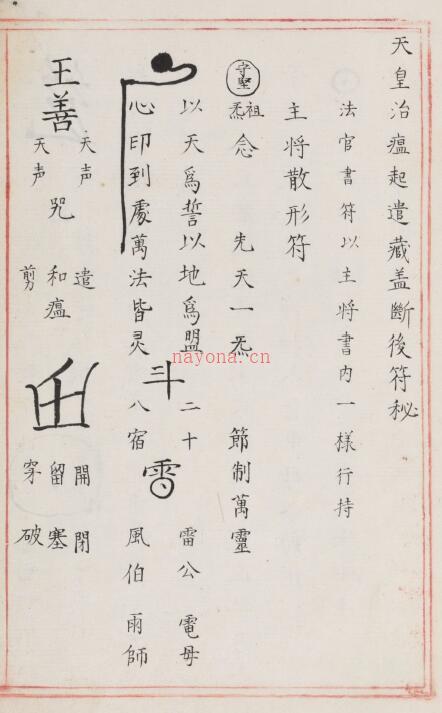 天皇治瘟起遣藏盖斷後符秘
法官書符以主將書内一樣行持
主將散形符
守堅
祖炁念 先天一炁 節制萬靈
以天爲誓以地爲盟 二十 雷公 電母
心印到處萬法皆灵 斗 八宿 雷 風伯 雨師
王善
天声 天声 咒
遣 和瘟 剪
開 閉
留 塞
穿 破
nayona.cn